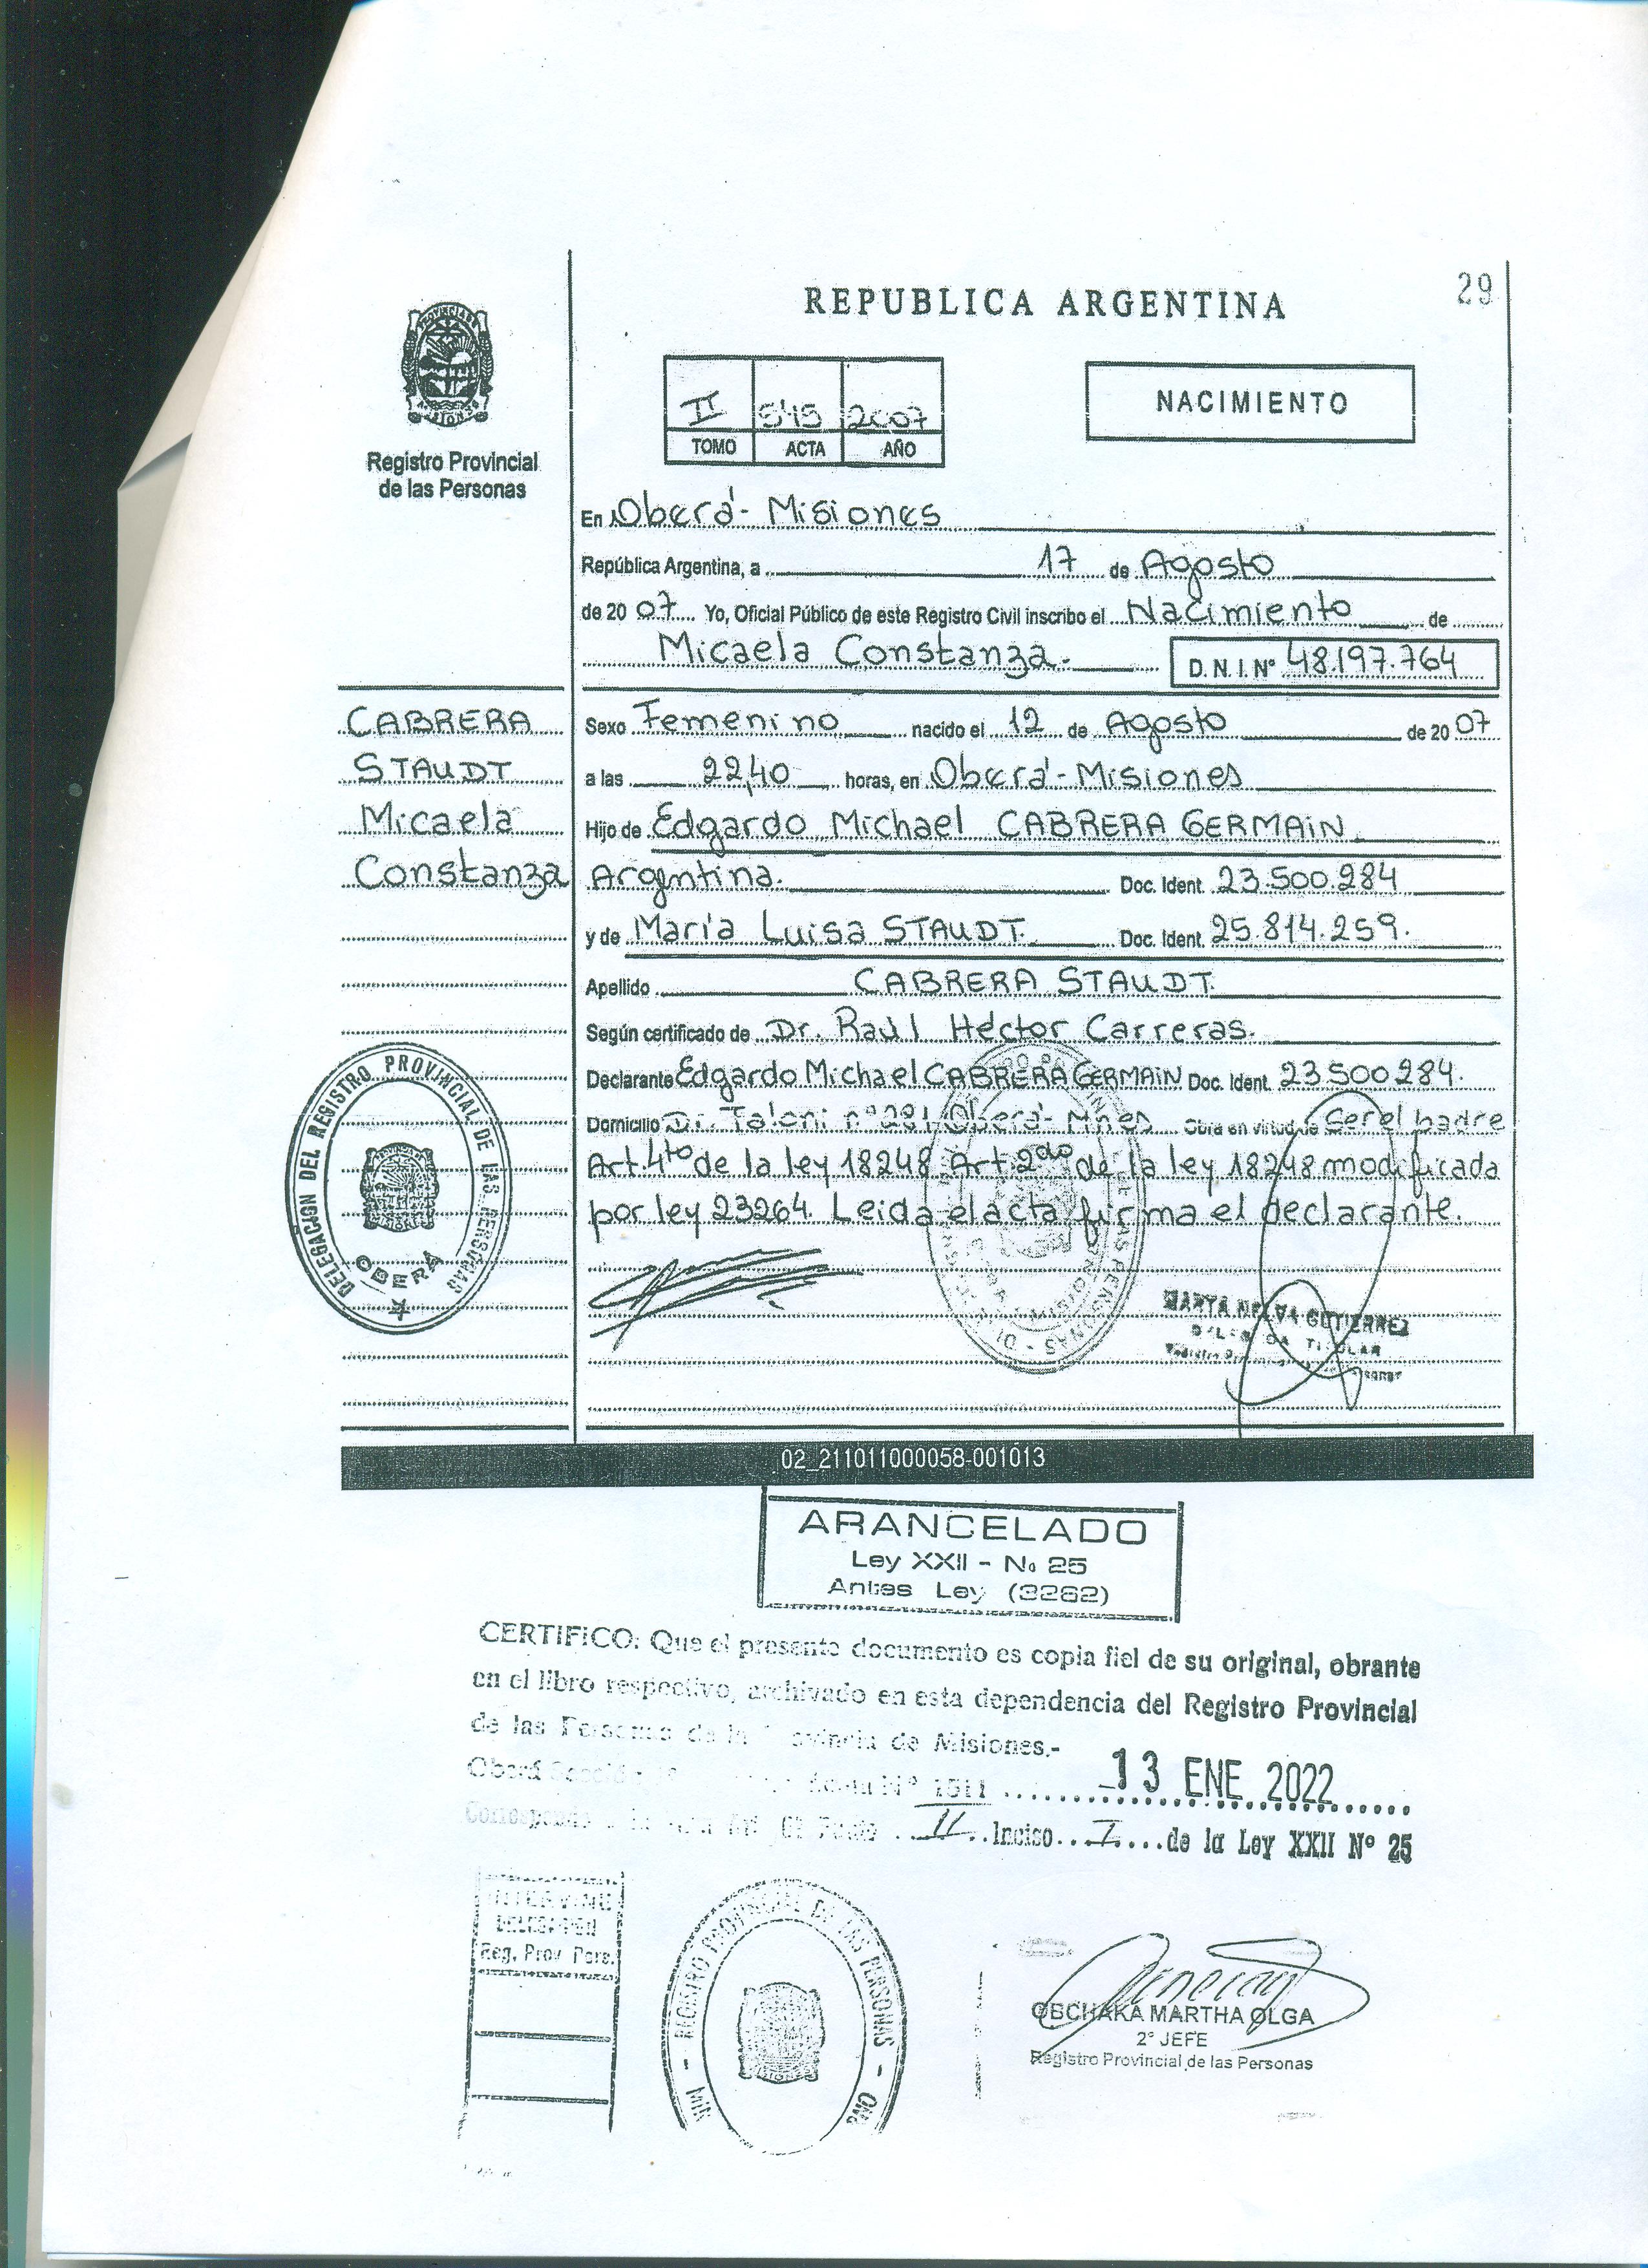 REPUBLICA ARGENTINA
29
PROVINCIA DE
MISIONES
Registro Provincial
de las Personas
II 545 2007
TOMO ACTA AÑO
NACIMIENTO
En Oberá - Misiones
República Argentina, a 17 de Agosto
de 20 07 Yo, Oficial Público de este Registro Civil inscribo el Nacimiento de
Micaela Constanza.- D. N. I. Nº 48.197.764
CABRERA
STAUDT
Micaela
Constanza
Sexo Femenino nacido el 12 de Agosto de 20 07
a las 22,40 horas, en Oberá - Misiones
Hijo de Edgardo Michael CABRERA GERMAIN
Argentina. Doc. Ident. 23.500.284
y de María Luisa STAUDT. Doc. Ident. 25.814.259.
Apellido CABRERA STAUDT.
Según certificado de Dr. Raúl Héctor Carreras.
Declarante Edgardo Michael CABRERA GERMAIN Doc. Ident. 23500284.
Domicilio Dr. nº 281 Oberá - Mnes Obra en virtud de Ser el padre
Art. 4to de la ley 18248 Art. 2do de la ley 18248 modificada
por ley 23264. Leida el acta firma el declarante.
DELEGACION DEL REGISTRO PROVINCIAL DE LAS PERSONAS
OBERA
GUTIERREZ
TITULAR
02_211011000058-001013
ARANCELADO
Ley XXII - No 25
Antes Ley (3262)
CERTIFICO: Que el presente documento es copia fiel de su original, obrante
en el libro respectivo, archivado en esta dependencia del Registro Provincial
de las Personas de la Provincia de Misiones.-
Oberá Nº 1511 13 ENE 2022
11 Inciso I de la Ley XXII Nº 25
INTERVINO
DELEGACION
Reg. Prov. Pers.
REGISTRO PROVINCIAL DE LAS PERSONAS
OBCHAKA MARTHA OLGA
2º JEFE
Registro Provincial de las Personas